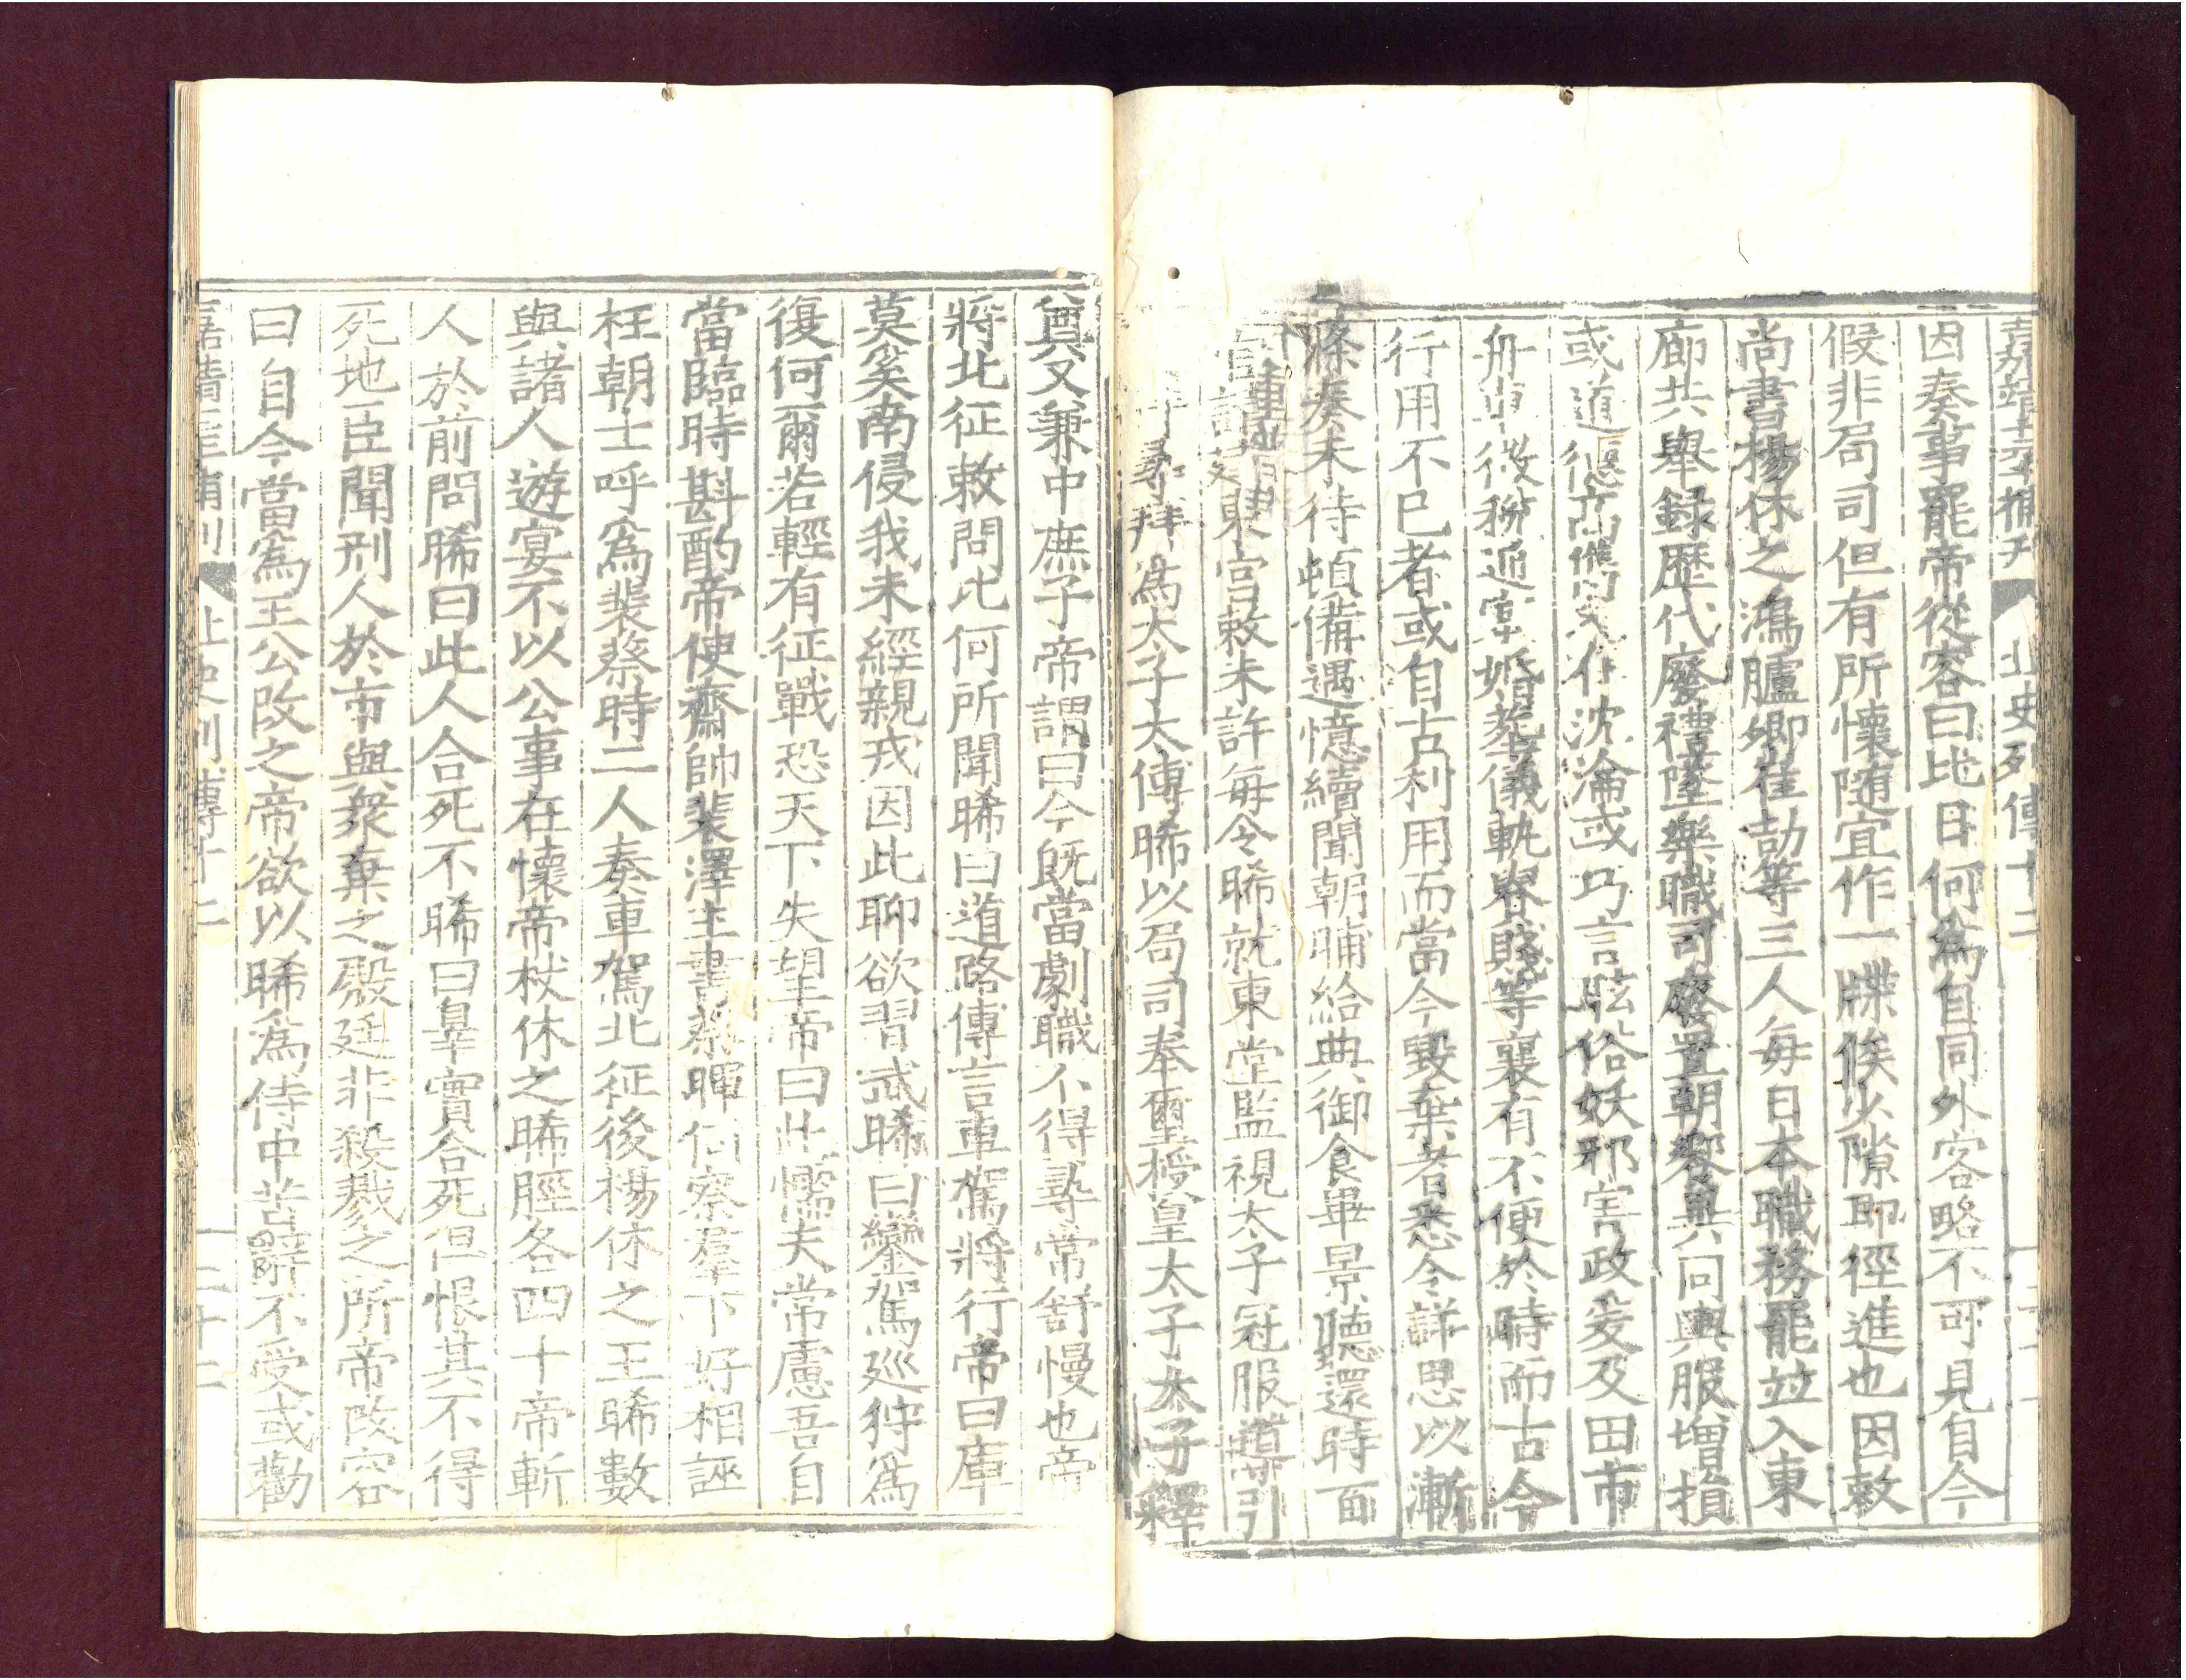 嘉靖元年補刊 北史列傳十二
因奏事罷帝從容曰比日何爲自同外客略不可見自今
假非局司但有所懷隨宜作一牒候少隙即徑進也因敕
尚書楊休之鴻臚卿崔劼等三人每日本職務罷並入東
廊共舉録歷代廢禮墜樂職司廢置朝饗異同輿服增損
或道德高儁久在沈淪或巧言眩俗妖邪害政爰及田市
舟車徵稅通塞婚葬儀軌貴賤等衰有不便於時而古今
行用不已者或自古利用而當今毀棄者悉令詳思以漸
條奏未待頓備遇憶續聞朝晡給典御食畢景聽還時
東宮敕未許每令晞就東堂監視太子冠服導引
尋拜爲太子太傅晞以局司奉璽授皇太子太子釋
奠又兼中庶子帝謂曰今既當劇職不得尋常舒慢也帝
將北征敕問比何所聞晞曰道路傳言車駕將行帝曰庫
莫奚南侵我未經親戎因此聊欲習武晞曰鑾駕巡狩爲
復何爾若輕有征戰恐天下失望帝曰此懦夫常慮吾自
當臨時斟酌帝使齋帥裴澤主書蔡暉伺察羣下好相誣
枉朝士呼爲裴蔡時二人奏車駕北征後楊休之王晞數
與諸人遊宴不以公事在懷帝杖休之晞脛各四十帝斬
人於前問晞曰此人合死不晞曰辠實合死但恨其不得
死地臣聞刑人於市與衆棄之殿廷非殺戮之所帝改容
曰自今當爲王公改之帝欲以晞爲侍中苦辭不受或勸
嘉靖元年補刊 北史列傳十二 二十二